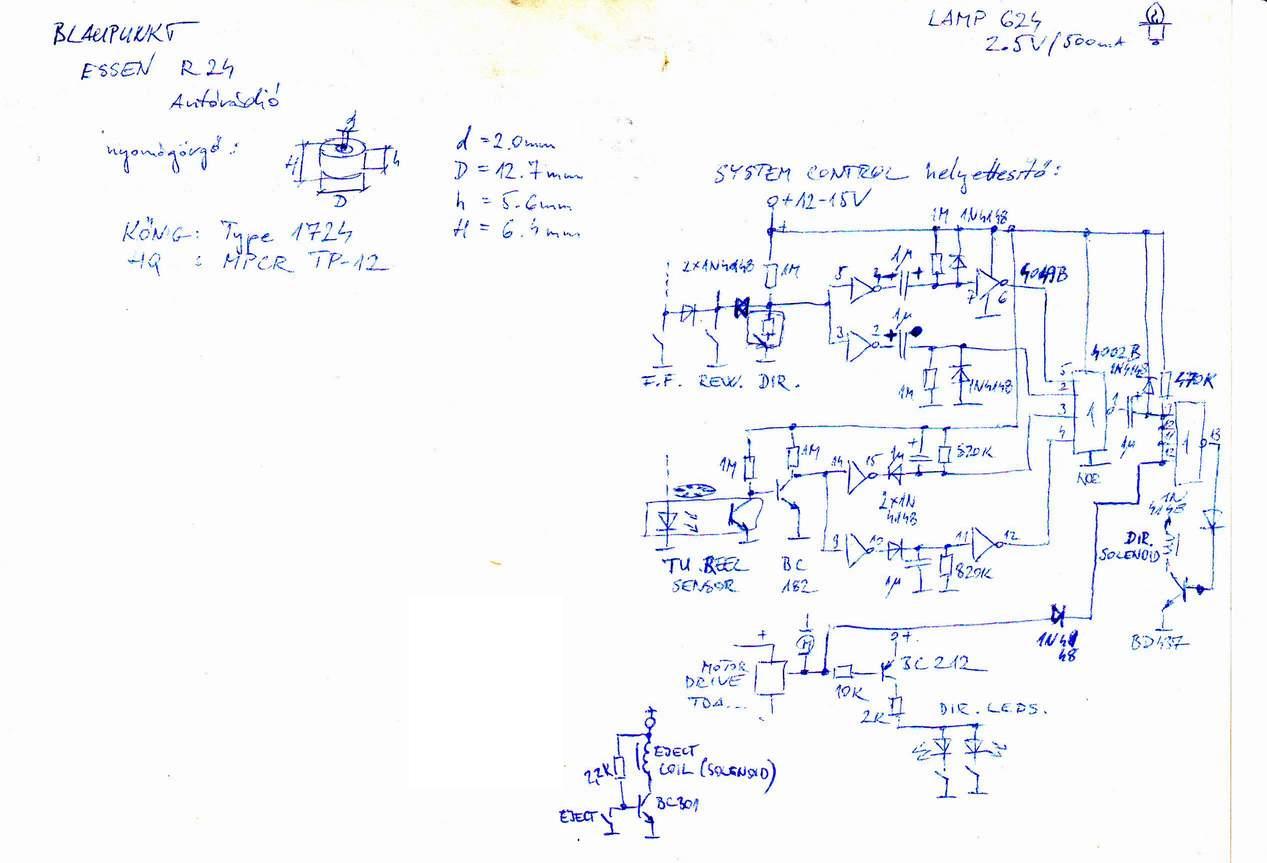 BLAUPUNKT
ESSEN R24
Autórádió
LAMP 624
2.5V/500mA
nyomógörgő:
d
H
h
D
d = 2.0mm
D = 12.7mm
h = 5.6mm
H = 6.4mm
KÖNIG: Type 1724
HQ : MPCR TP-12
SYSTEM CONTROL helyettesítő:
+12-15V
+
1M 1N4148
2×1N4148
1M
5 4 + 1µ +
7 6
4049B
3 2 + 1µ
F.F. REW. DIR.
1M
1N4148
4002B
1N4148
470K
5
2
3
4
1
1
1µ
+
1
13
1M
1M
14 15
1µ
+
820K
2×1N
4148
9 10
1µ
11 12
820K
1N
4148
DIR.
SOLENOID
T.U. REEL
SENSOR
BC
182
BD437
1N41
48
+
M
+
MOTOR
DRIVE
TDA...
10K
BC212
2K
DIR. LEDS.
+
2,2K
EJECT
COIL (SOLENOID)
BC301
EJECT